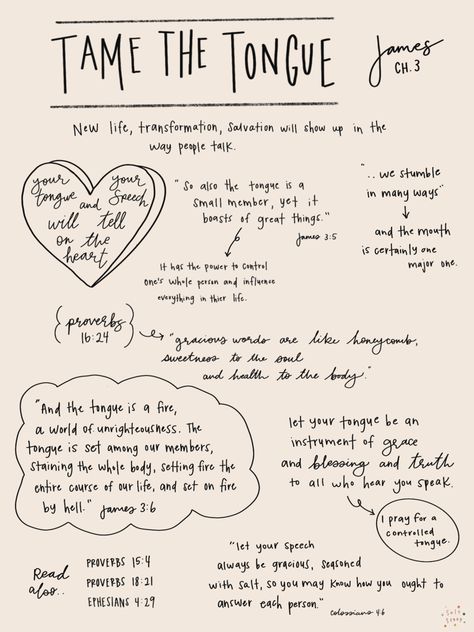 TAME THE TONGUE
James
CH. 3
New life, transformation, Salvation will show up in the
way people talk.
your tongue and your speech
will tell
on the
heart
"So also the tongue is a
small member, yet it
boasts of great things."
James 3:5
It has the power to control
one's whole person and influence
everything in thier life.
"..we stumble
in many ways"
and the mouth
is certainly one
major one.
{proverbs
16:24}
"gracious words are like honeycomb,
sweetness to the soul
and health to the body."
"And the tongue is a fire,
a world of unrighteousness. The
tongue is set among our members,
staining the whole body, setting fire the
entire course of our life, and set on fire
by hell." James 3:6
let your tongue be an
instrument of grace
and blessing and truth
to all who hear you speak.
I pray for a
controlled
tongue.
Read
also..
PROVERBS 15:4
PROVERBS 18:21
EPHESIANS 4:29
"let your speech
always be gracious, seasoned
with salt, so you may know how you ought to
answer each person."
Colossians 4:6